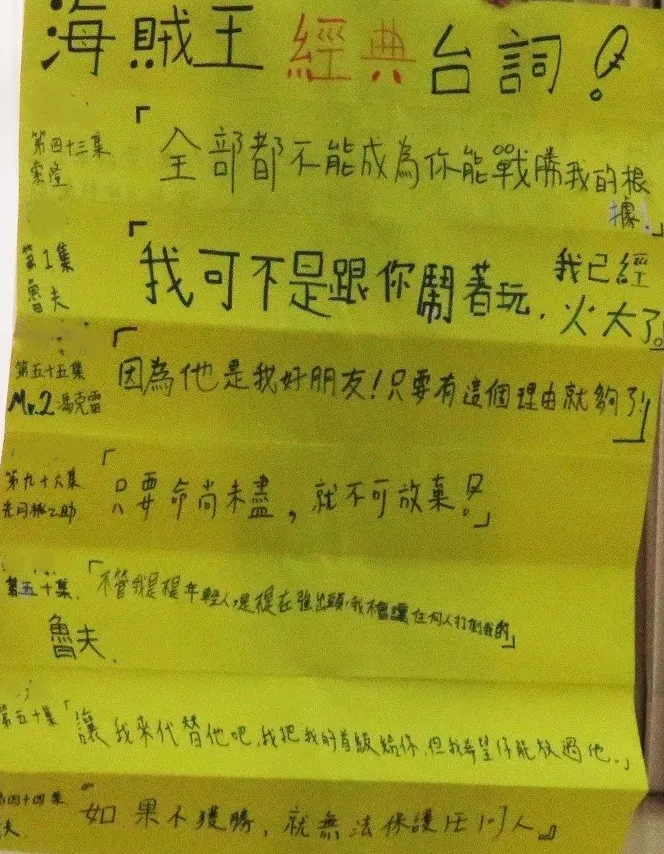 海賊王 經典台詞!
第四十三集
索隆
「全部都不能成為你能戰勝我的根
據!」
第1集
魯夫
「我可不是跟你鬧著玩,我已經
火大了。」
第五十五集
Mr.2 馮克雷
「因為他是我好朋友!只要有這個理由就夠了!」
第九十六集
光月桃之助
「只要命尚未盡,就不可放棄!」
第五十集.
魯夫.
「不管我是年輕人,還是在強出頭,我不會讓任何人打倒我的」
第五十集「讓我來代替他吧,我把我的首級給你,但我希望你能放過他。」
第四十四集
夫.
『如果不獲勝,就無法保護任何人』